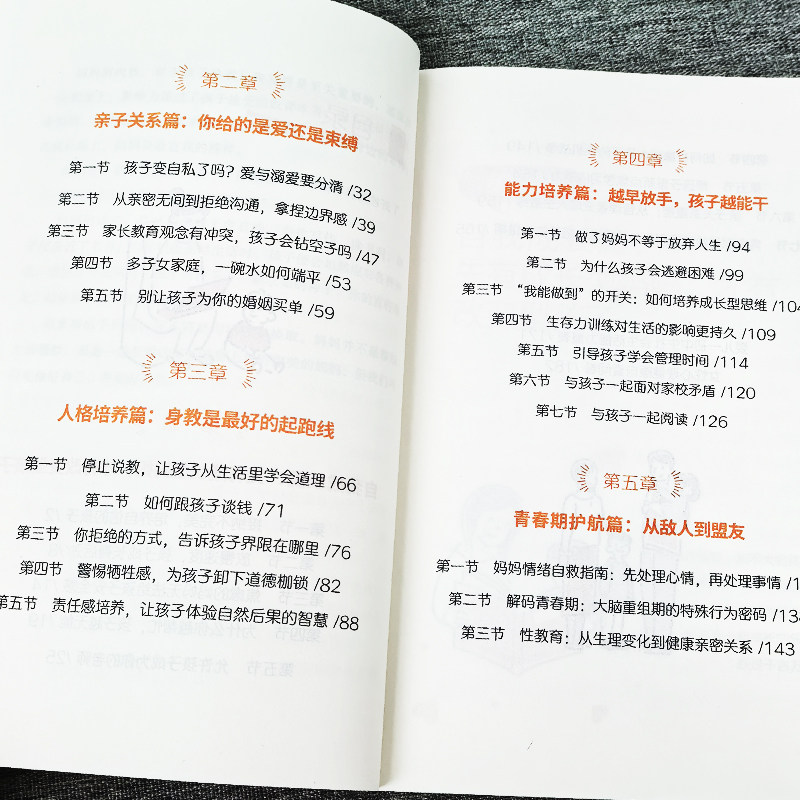 第二章
亲子关系篇：你给的是爱还是束缚
第一节 孩子变自私了吗？爱与溺爱要分清 /32
第二节 从亲密无间到拒绝沟通，拿捏边界感 /39
第三节 家长教育观念有冲突，孩子会钻空子吗 /47
第四节 多子女家庭，一碗水如何端平 /53
第五节 别让孩子为你的婚姻买单 /59
第三章
人格培养篇：身教是最好的起跑线
第一节 停止说教，让孩子从生活里学会道理 /66
第二节 如何跟孩子谈钱 /71
第三节 你拒绝的方式，告诉孩子界限在哪里 /76
第四节 警惕牺牲感，为孩子卸下道德枷锁 /82
第五节 责任感培养，让孩子体验自然后果的智慧 /88
第四章
能力培养篇：越早放手，孩子越能干
第一节 做了妈妈不等于放弃人生 /94
第二节 为什么孩子会逃避困难 /99
第三节 “我能做到”的开关：如何培养成长型思维 /104
第四节 生存力训练对生活的影响更持久 /109
第五节 引导孩子学会管理时间 /114
第六节 与孩子一起面对家校矛盾 /120
第七节 与孩子一起阅读 /126
第五章
青春期护航篇：从敌人到盟友
第一节 妈妈情绪自救指南：先处理心情，再处理事情
第二节 解码青春期：大脑重组期的特殊行为密码
第三节 性教育：从生理变化到健康亲密关系 /143